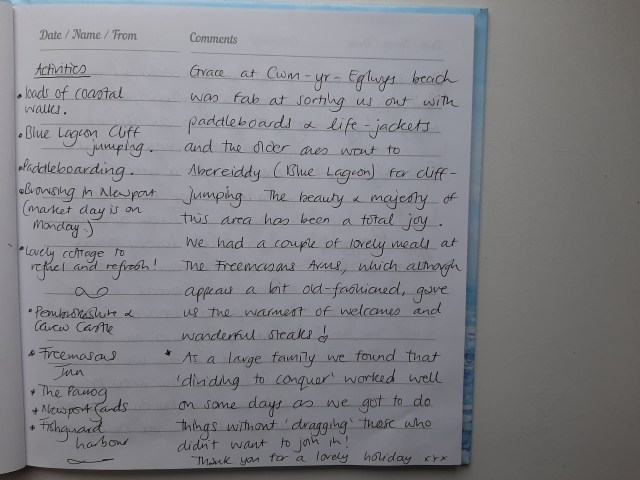 Date / Name / From
Comments
Activities
• loads of coastal
walks.
• Blue Lagoon Cliff
jumping.
• Paddleboarding.
• Browsing in Newport
(market day is on
Monday.)
• Lovely cottage to
refuel and refresh!
• Pembrokeshire &
Carew Castle
• Freemasons
Inn
• The Parrog
• Newport Sands
• Fishguard
harbour
Grace at Cwm-yr-Eglwys beach
was fab at sorting us out with
paddleboards & life-jackets
and the older ones went to
Abereiddy (Blue Lagoon) for cliff-
jumping. The beauty & majesty of
this area has been a total joy.
We had a couple of lovely meals at
The Freemasons Arms, which although
appears a bit old-fashioned, gave
us the warmest of welcomes and
wonderful steaks!
* As a large family we found that
'dividing to conquer' worked well
on some days as we got to do
things without 'dragging' those who
didn't want to join in!
Thank you for a lovely holiday xrx